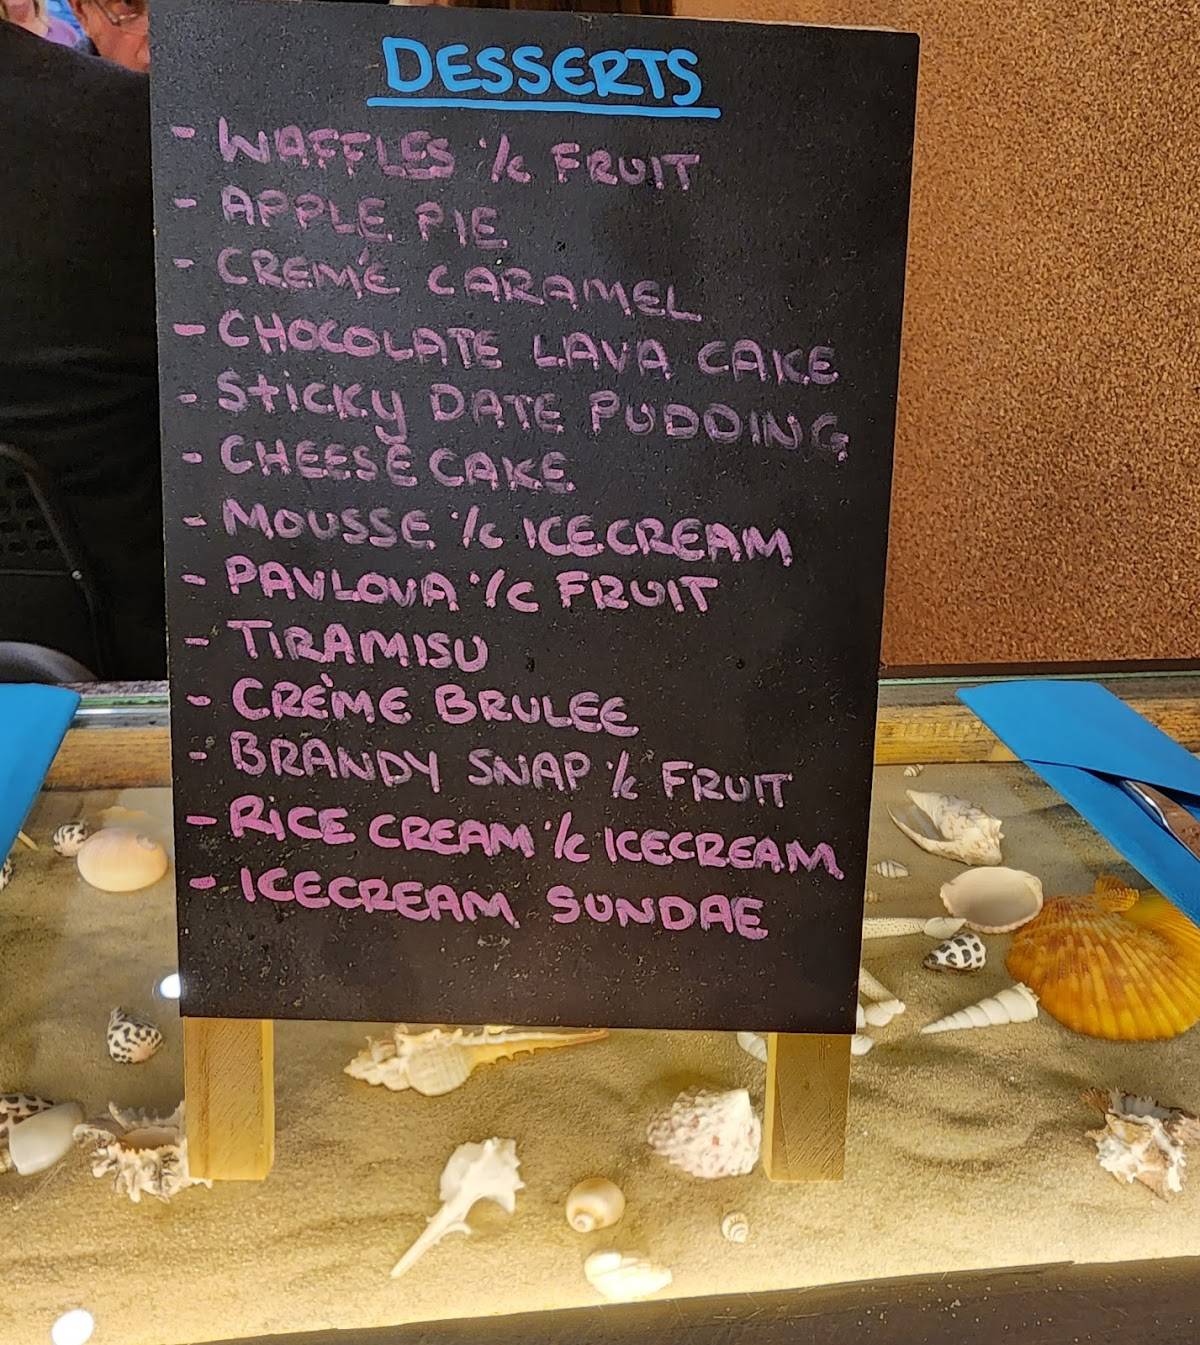 DESSERTS
- WAFFLES '/c FRUIT
- APPLE PIE
- CREMÉ CARAMEL
- CHOCOLATE LAVA CAKE
- STiCKy DATE PUDDING
- CHEESE CAKE
- MOUSSE '/c ICECREAM
- PAVLOVA '/c FRUIT
- TIRAMISU
- CRÈME BRULEE
- BRANDY SNAP '/c FRUIT
- RiCE CREAM '/c ICECREAM
- ICECREAM SUNDAE